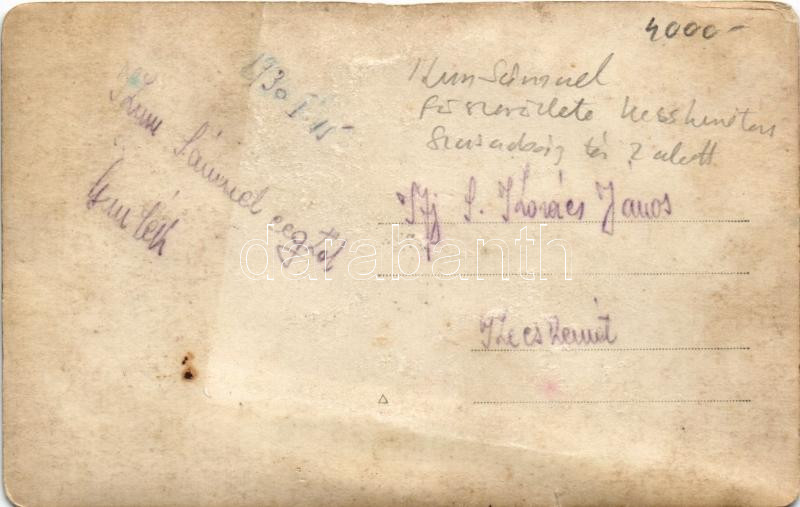 4000-
1930 I. 15
Kun Sámuel
Kun Sámuel cégtől
Emlék
Kecskemét
Szabadság tér 2 alatt
Ifj S. Kovács János
Kecskemét
darabanth